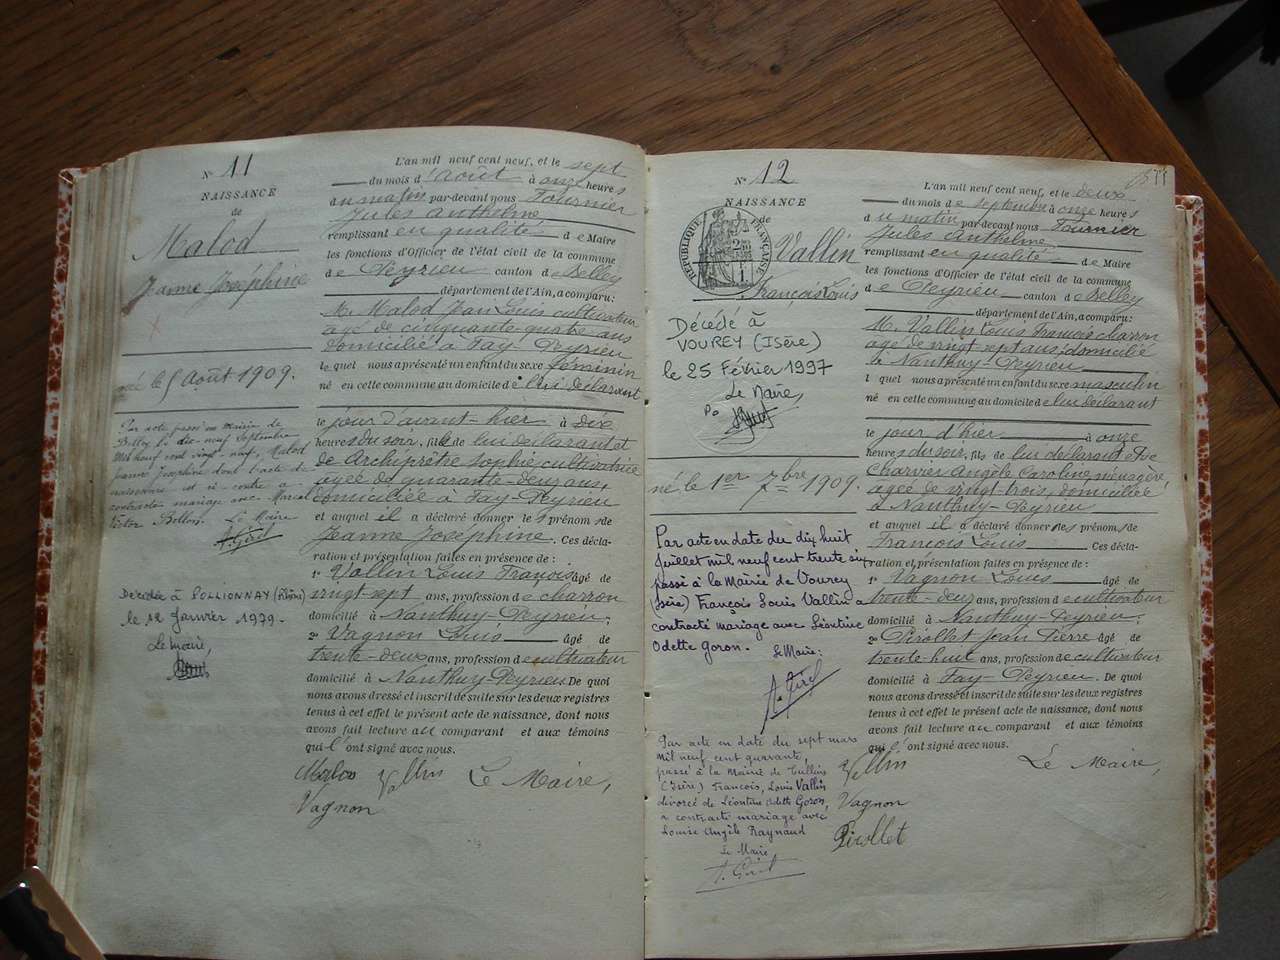 N° 11
NAISSANCE
de
Malod
Jeanne Joséphine
née le 5 Août 1909.
Par acte passé en mairie de
Belley le dix-neuf Septembre
mil neuf cent vingt-neuf, Malod
Jeanne Joséphine dont l'acte de
naissance est ci-contre a
contracté mariage avec Marcel
Victor Bollon.
Le Maire
A. Girel
Décédée à POLLIONNAY (Rhône)
le 12 Janvier 1979.
Le Maire,
L'an mil neuf cent neuf, et le sept
du mois d'août à onze heures
du matin par-devant nous Fournier
Jules Anthelme
remplissant en qualité de Maire
les fonctions d'Officier de l'état civil de la commune
de Peyrieu canton de Belley
département de l'Ain, a comparu:
M. Malod Jean Louis cultivateur
âgé de cinquante-quatre ans
domicilié à Fay-Peyrieu
lequel nous a présenté un enfant du sexe féminin
né en cette commune au domicile de lui déclarant
le jour d'avant-hier à dix
heures du soir, fille de lui déclarant et
de Archiprêtre Sophie, cultivatrice
âgée de quarante-deux ans,
domiciliée à Fay-Peyrieu
et auquel il a déclaré donner les prénoms de
Jeanne Joséphine. Ces décla-
ration et présentation faites en présence de :
1° Vallin Louis François âgé de
vingt-sept ans, profession de charron
domicilié à Nanthuy-Peyrieu;
2° Vagnon Louis âgé de
trente-deux ans, profession de cultivateur
domicilié à Nanthuy-Peyrieu. De quoi
nous avons dressé et inscrit de suite sur les deux registres
tenus à cet effet le présent acte de naissance, dont nous
avons fait lecture au comparant et aux témoins
qui l'ont signé avec nous.
Malod Vallin Le Maire,
Vagnon
577
N° 12
NAISSANCE
de
RÉPUBLIQUE FRANÇAISE
Vallin
François Louis
Décédé à
VOUREY (Isère)
le 25 Février 1997
Le Maire,
Po
né le 1er 7bre 1909.
Par acte en date du dix huit
Juillet mil neuf cent trente six
passé à la Mairie de Vourey
(Isère) François Louis Vallin a
contracté mariage avec Léontine
Odette Goron.
Le Maire:
A. Girel
Par acte en date du sept mars
mil neuf cent quarante,
passé à la Mairie de Tullins
(Isère) François, Louis Vallin
divorcé de Léontine Odette Goron,
a contracté mariage avec
Louise Angèle Raynaud
Le Maire
A. Girel
L'an mil neuf cent neuf, et le deux
du mois de septembre à onze heures
du matin par-devant nous Fournier
Jules Anthelme
remplissant en qualité de Maire
les fonctions d'Officier de l'état civil de la commune
de Peyrieu canton de Belley
département de l'Ain, a comparu:
M. Vallin Louis François charron
âgé de vingt sept ans, domicilié
à Nanthuy-Peyrieu
lequel nous a présenté un enfant du sexe masculin
né en cette commune au domicile de lui déclarant
le jour d'hier à onze
heures du soir, fils de lui déclarant et de
Charvier Angèle Caroline, ménagère,
âgée de vingt-trois, domiciliée
à Nanthuy-Peyrieu
et auquel il a déclaré donner les prénoms de
François Louis. Ces décla-
ration et présentation faites en présence de :
1° Vagnon Louis âgé de
trente-deux ans, profession de cultivateur
domicilié à Nanthuy-Peyrieu;
2° Pirollet Jean Pierre âgé de
trente-huit ans, profession de cultivateur
domicilié à Fay-Peyrieu. De quoi
nous avons dressé et inscrit de suite sur les deux registres
tenus à cet effet le présent acte de naissance, dont nous
avons fait lecture au comparant et aux témoins
qui l'ont signé avec nous.
Vallin Le Maire,
Vagnon
Pirollet